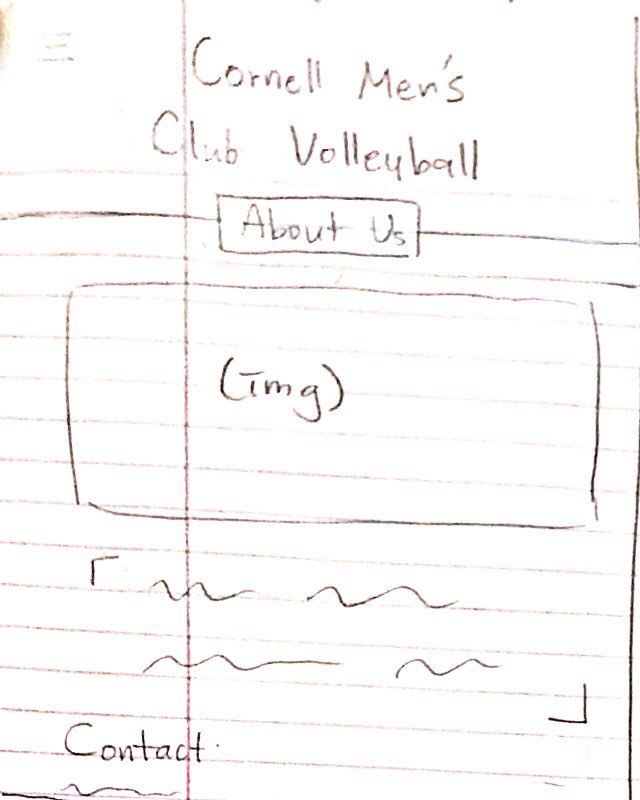 Cornell Men's
Club Volleyball
About Us
(img)
Contact